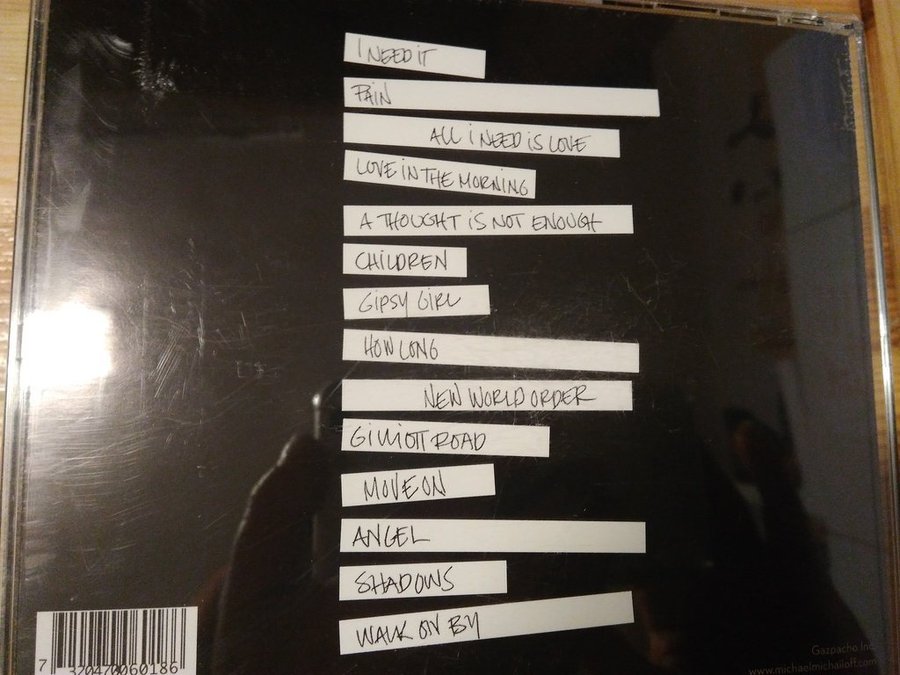 I NEED IT
PAIN
ALL I NEED IS LOVE
LOVE IN THE MORNING
A THOUGHT IS NOT ENOUGH
CHILDREN
GIPSY GIRL
HOW LONG
NEW WORLD ORDER
GILLIOTT ROAD
MOVE ON
ANGEL
SHADOWS
WALK ON BY
7 320470060186
Gazpacho Inc.
www.michaelmichailoff.com